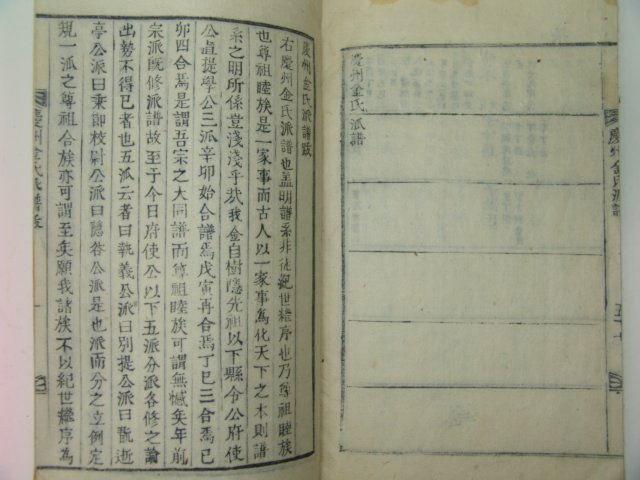 慶州金氏派譜
慶州金氏派譜
慶州金氏派譜跋
右慶州金氏派譜也盖明譜系非徒紀世繼序也乃尊祖睦族
也尊祖睦族是一家事而古人以一家事為化天下之本則譜
系之明所係豈淺淺乎哉我金自樹隱先祖以下縣令公府使
公直提學公三派辛卯始合譜焉戊寅再合焉丁巳三合焉己
卯四合焉是謂吾宗之大同譜而尊祖睦族可謂無憾矣年前
宗派既修派譜故至于今日府使公以下五派分派各修之論
出勢不得已者也五派云者曰執義公派曰別提公派曰翫逝
亭公派曰秉節校尉公派曰隱谷公派是也派而分之立例定
規一派之尊祖合族亦可謂至矣願我諸族不以紀世繼序為
慶州金氏派譜跋
一